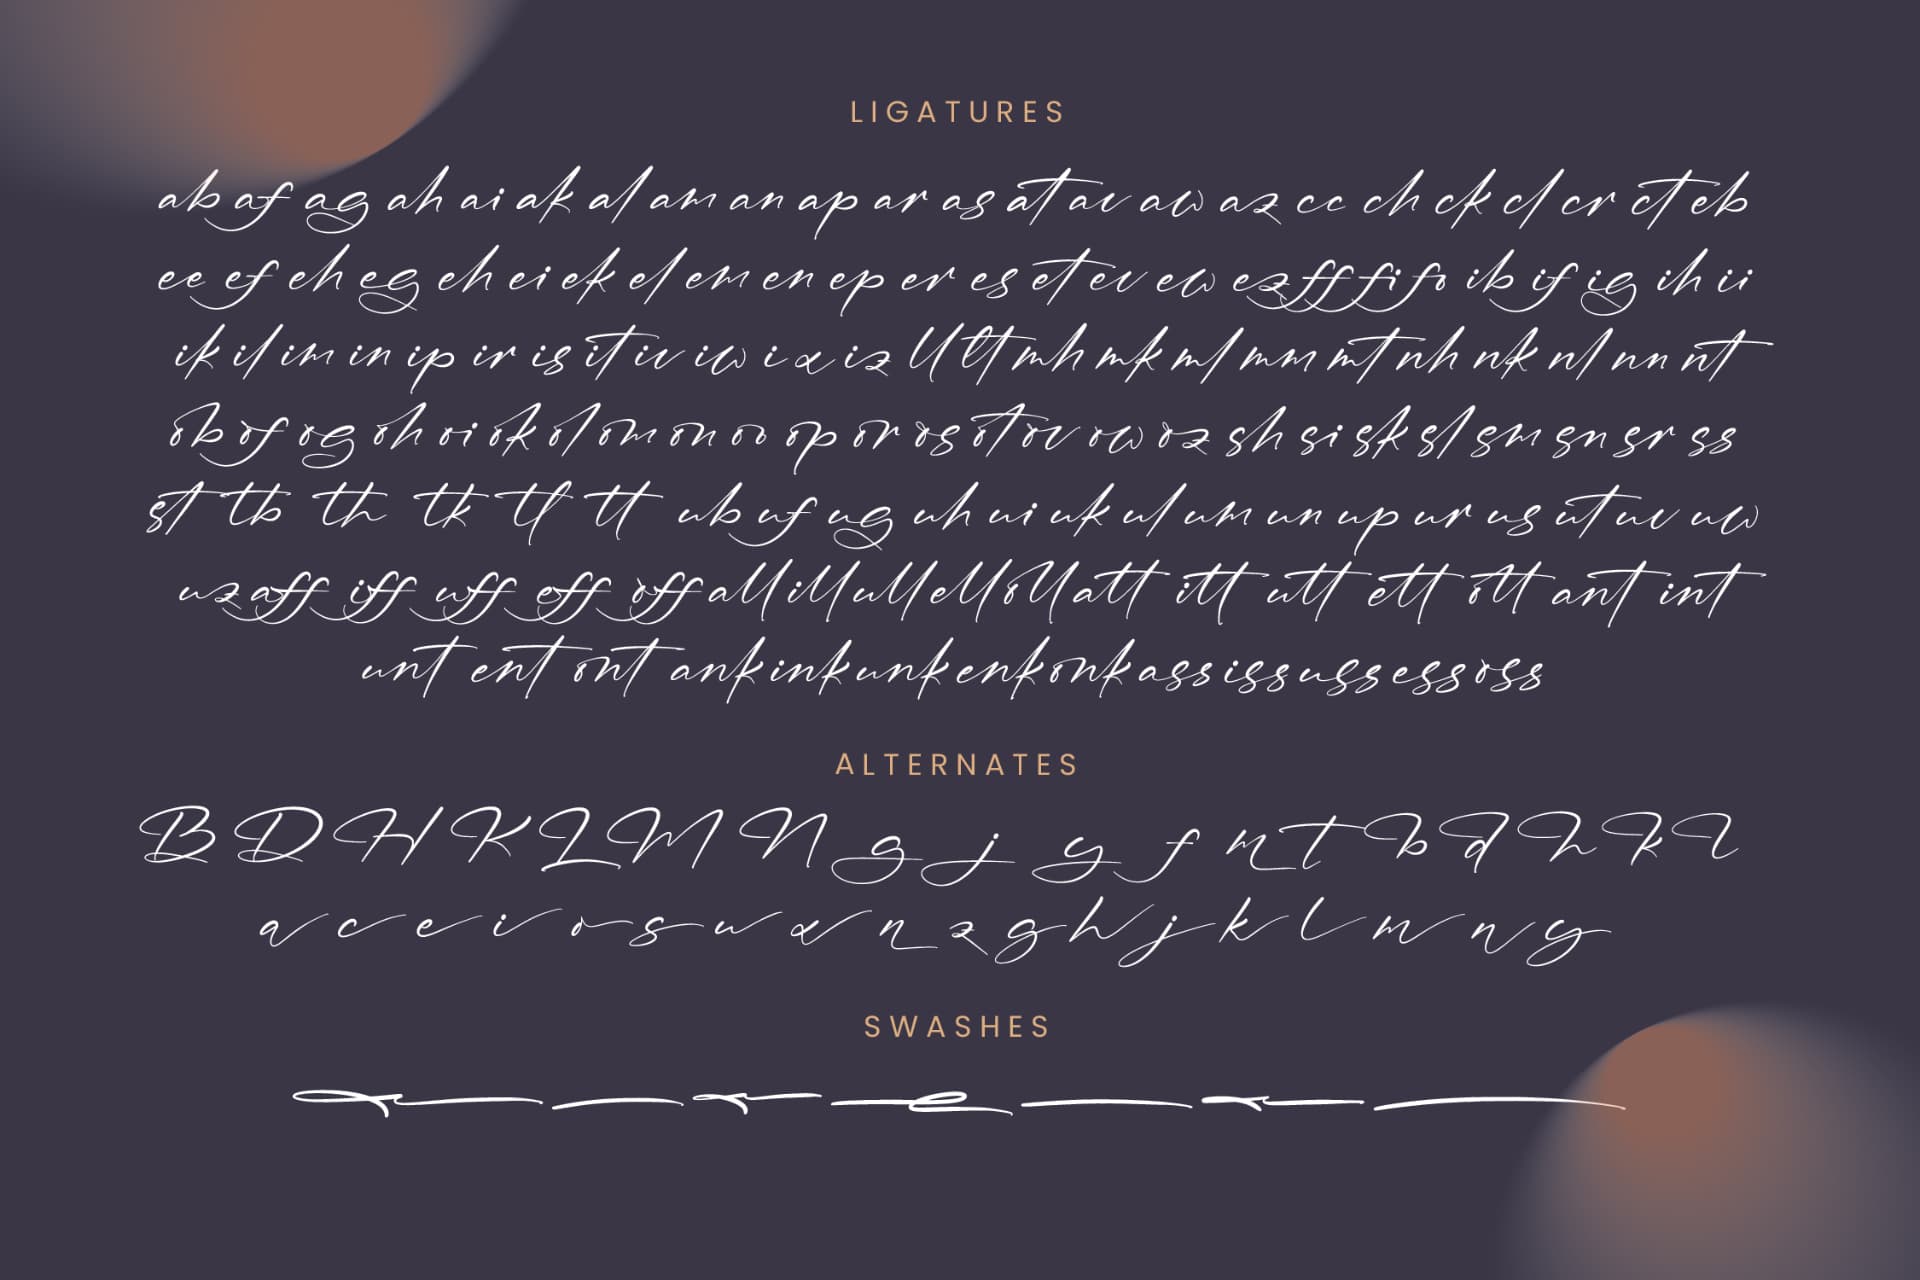 LIGATURES
ab af ag ah ai ak al am an ap ar as at av aw az cc ch ck cl cr ct eb
ee ef eh eg eh ei ek el em en ep er es et ev ew ez ff fi fo ib if ig ih ii
ik il im in ip ir is it iv iw ix iz ll lt mh mk ml mm mt nh nk nl nn nt
ob of og oh oi ok ol om on oo op or os ot ov ow oz sh si sk sl sm sn sr ss
st tb th tk tl tt ub uf ug uh ui uk ul um un up ur us ut uv uw
uz aff iff uff eff off all ill ull ell oll att itt utt ett ott ant int
unt ent ont ank ink unk enk onk ass iss uss ess oss
ALTERNATES
B D H K L M N g j y f m t b d h k l
a c e i o s u x n z g h j k l m n y
SWASHES